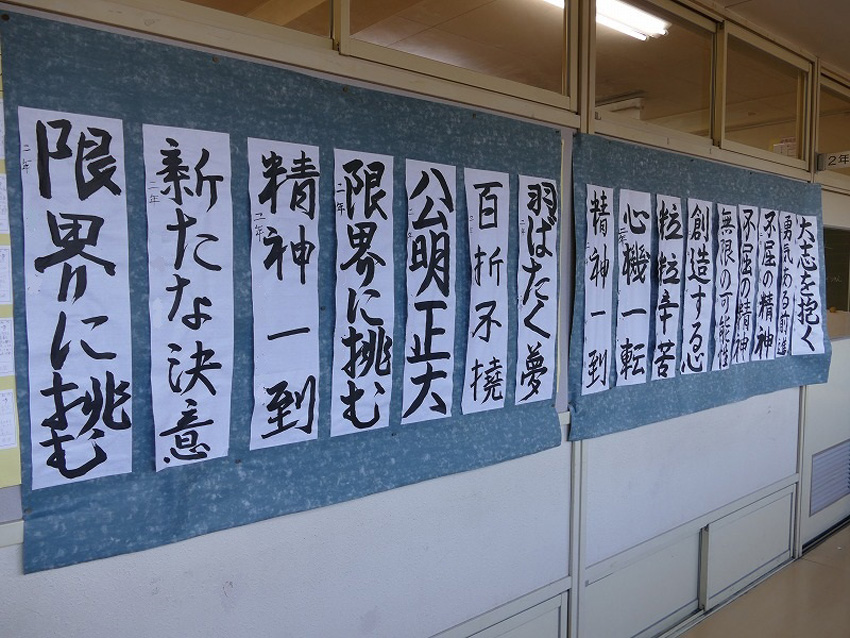 限界に挑む
二年
新たな決意
二年
精神一到
二年
限界に挑む
二年
公明正大
二年
百折不撓
二年
羽ばたく夢
二年
精神一到
心機一転
粒粒辛苦
創造する心
無限の可能性
不屈の精神
不屈の精神
勇気ある前進
大志を抱く
2年